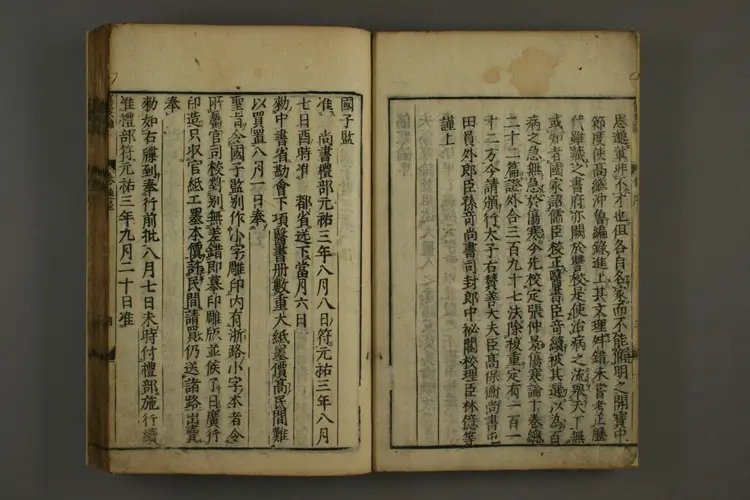 思邈輩非不才也但各自名家而不能脩明之開寶中
節度使高繼沖曾編錄進上其文理舛錯未嘗考正歷
代雖藏之書府亦闕於讎校是使治病之流舉天下無
或知者國家詔儒臣校正醫書臣奇續被其選以為百
病之急無急於傷寒今先校定張仲景傷寒論十卷總
二十二篇證外合三百九十七法除複重定有一百一
十二方今請頒行太子右贊善大夫臣高保衡尚書屯
田員外郎臣孫奇尚書司封郎中祕閣校理臣林億等
謹上
國子監
准 尚書禮部元祐三年八月八日符元祐三年八月
七日酉時准 都省送下當月六日
勑中書省勘會下項醫書冊數重大紙墨價高民間難
以買置八月一日奉
聖旨令國子監別作小字雕印內有浙路小字本者令
所屬官司校對別無差錯即摹印雕版並候了日廣行
印造只收官紙工墨本價許民間請買仍送諸路出賣
奉
勑如右牒到奉行前批八月七日未時付禮部施行續
准禮部符元祐三年九月二十日准